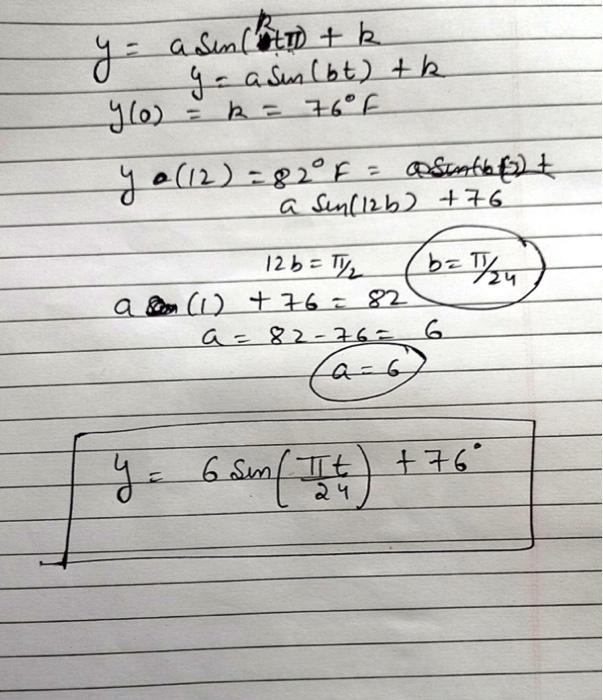 y = a sin(btπ) + k
y = a sin(bt) + k
y(0) = k = 76°F
y (12) = 82°F =
a sin(12b) + 76
12b = π/2 b = π/24
a (1) + 76 = 82
a = 82 - 76 = 6
a = 6
y = 6 sin(πt/24) + 76°